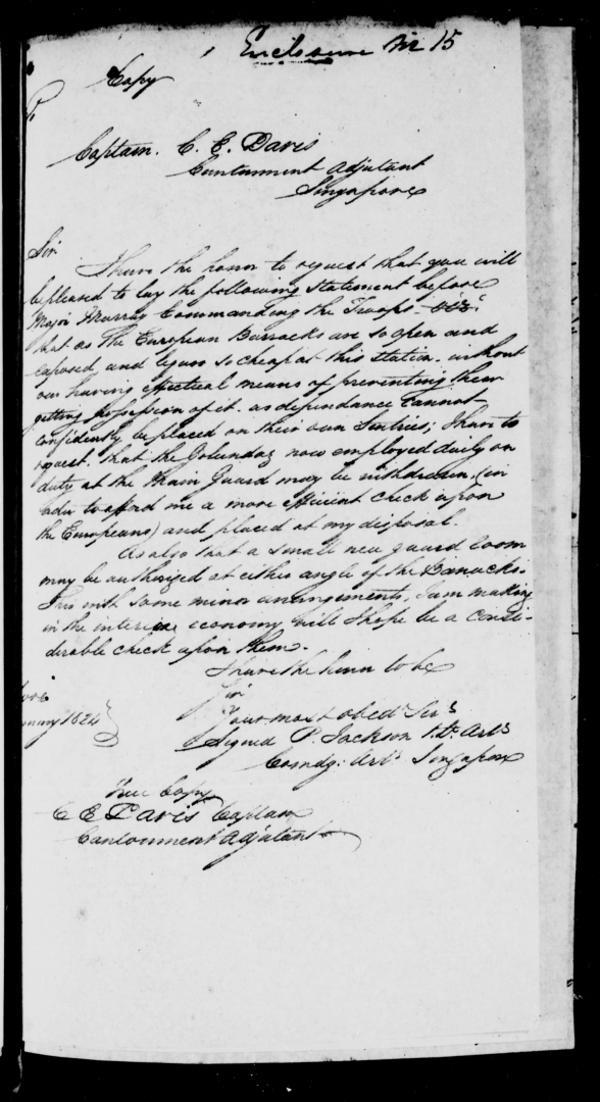 Enclosure No 15
Copy
Captain. C. E. Davis
Cantonment Adjutant
Singapore
Sir
I have the honor to request that you will
be pleased to lay the following Statement before
Major Murray Commanding the Troops. Vizt.
that as the European Barracks are so open and
exposed, and liquor so cheap at this station. without
our having effectual means of preventing them
getting possession of it. as dependance cannot
confidently be placed on their own Sentries; I have to
request. that the Golundaz now employed daily on
duty at the Main Guard may be withdrawn, (in
order to afford me a more efficient check upon
the Europeans) and placed at my disposal.
As also that a small new guard room
may be authorized at either angle of the Barracks.
This with some minor arrangements, I am making
in the interior economy will I hope be a consi-
derable check upon them.
I have the honor to be
Sir
Your most obedt Servt
Signed P. Jackson Lt. Arty
Comdg: Arty Singapore
ore
nuary 1824
True Copy
C E Davis Captain
Cantonment Adjutant